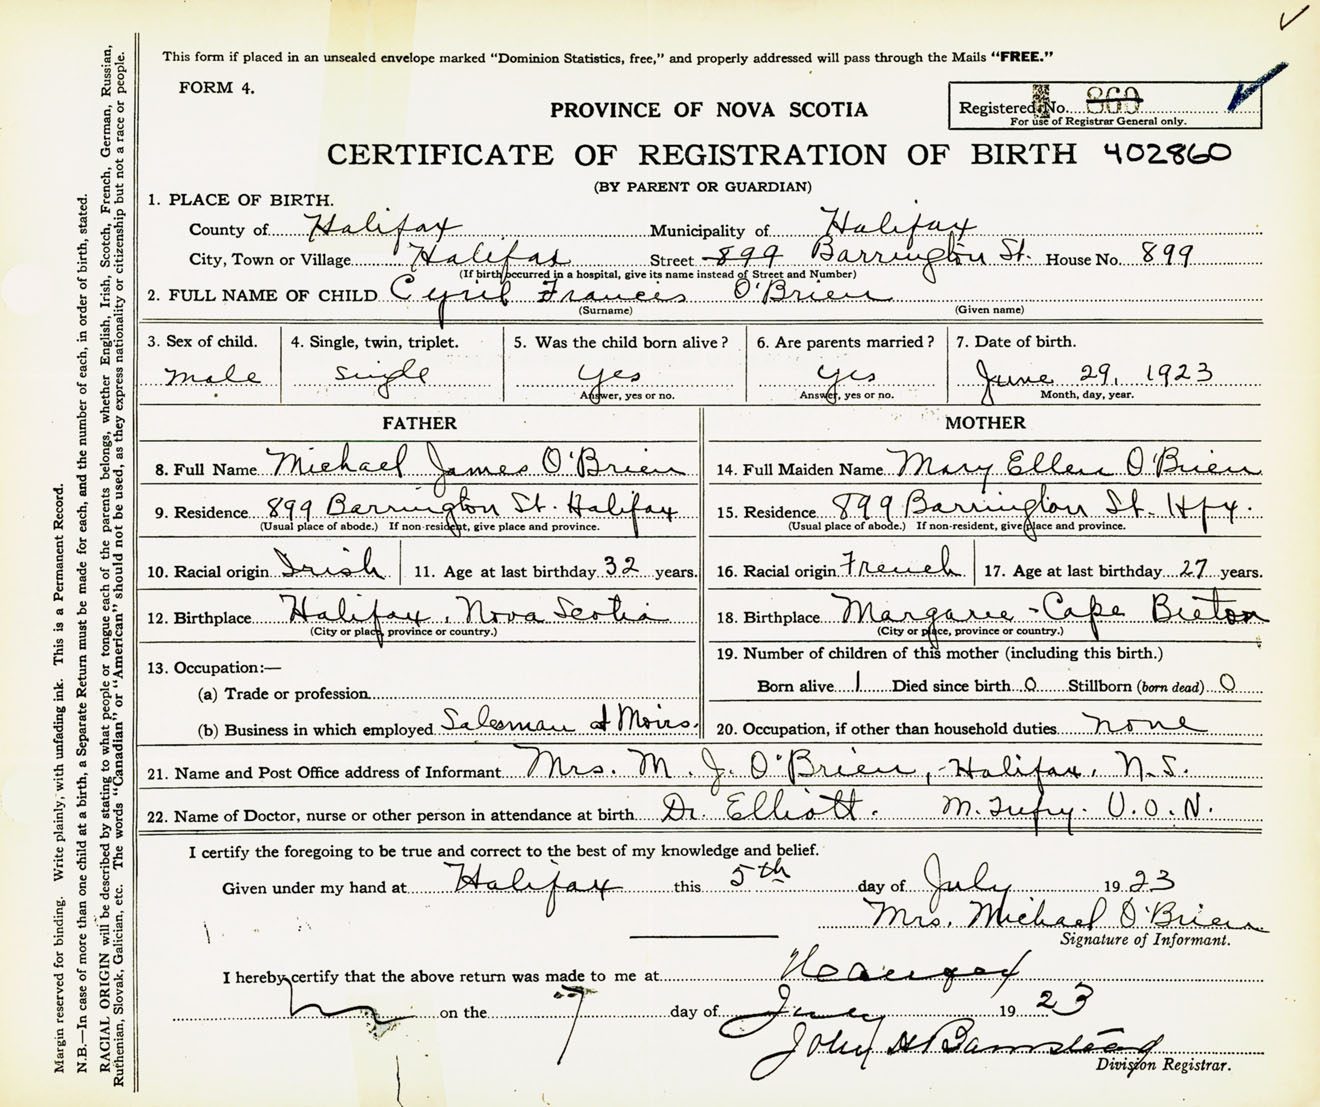 This form if placed in an unsealed envelope marked "Dominion Statistics, free," and properly addressed will pass through the Mails "FREE."
FORM 4.
PROVINCE OF NOVA SCOTIA
Registered No. 860
For use of Registrar General only.
CERTIFICATE OF REGISTRATION OF BIRTH 402860
(BY PARENT OR GUARDIAN)
1. PLACE OF BIRTH.
County of Halifax Municipality of Halifax
City, Town or Village Halifax Street 899 Barrington St. House No. 899
(If birth occurred in a hospital, give its name instead of Street and Number)
2. FULL NAME OF CHILD Cyril Francis O'Brien
(Surname) (Given name)
3. Sex of child. 4. Single, twin, triplet. 5. Was the child born alive? 6. Are parents married? 7. Date of birth.
Male Single Yes Yes June 29, 1923
Answer, yes or no. Answer, yes or no. Month, day, year.
FATHER MOTHER
8. Full Name Michael James O'Brien 14. Full Maiden Name Mary Ellen O'Brien
9. Residence 899 Barrington St. Halifax 15. Residence 899 Barrington St. Hfx.
(Usual place of abode.) If non-resident, give place and province. (Usual place of abode.) If non-resident, give place and province.
10. Racial origin Irish 11. Age at last birthday 32 years. 16. Racial origin French 17. Age at last birthday 27 years.
12. Birthplace Halifax, Nova Scotia 18. Birthplace Margaree - Cape Breton
(City or place, province or country.) (City or place, province or country.)
13. Occupation:— 19. Number of children of this mother (including this birth.)
(a) Trade or profession Born alive 1 Died since birth 0 Stillborn (born dead) 0
(b) Business in which employed Salesman at Moirs. 20. Occupation, if other than household duties none
21. Name and Post Office address of Informant Mrs. M. J. O'Brien, Halifax, N.S.
22. Name of Doctor, nurse or other person in attendance at birth Dr. Elliott. M. V.O.N.
I certify the foregoing to be true and correct to the best of my knowledge and belief.
Given under my hand at Halifax this 5th day of July 1923
Mrs. Michael O'Brien
Signature of Informant.
I hereby certify that the above return was made to me at Halifax
on the 7 day of July 1923
John H Barnstead
Division Registrar.
Margin reserved for binding. Write plainly, with unfading ink. This is a Permanent Record.
N.B.—In case of more than one child at a birth, a Separate Return must be made for each, and the number of each, in order of birth, stated.
RACIAL ORIGIN will be described by stating to what people or tongue each of the parents belongs, whether English, Irish, Scotch, French, German, Russian,
Ruthenian, Slovak, Galician, etc. The words "Canadian" or "American" should not be used, as they express nationality or citizenship but not a race or people.